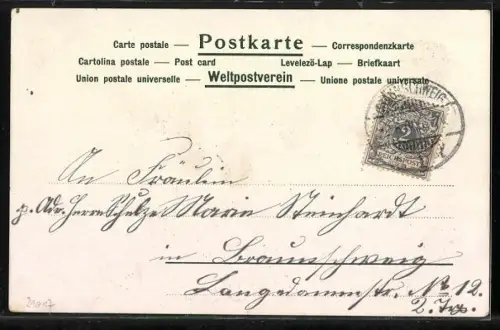 Carte postale — Postkarte — Correspondenzkarte
Cartolina postale — Post card Levelezö-Lap — Briefkaart
Union postale universelle — Weltpostverein — Unione postale universale
BRAUNSCHWEIG
2
An Fräulein
p. Adr. Herrn Schulze Marie Steinhardt
in Braunschweig
Langedammstr. No 12.
2.